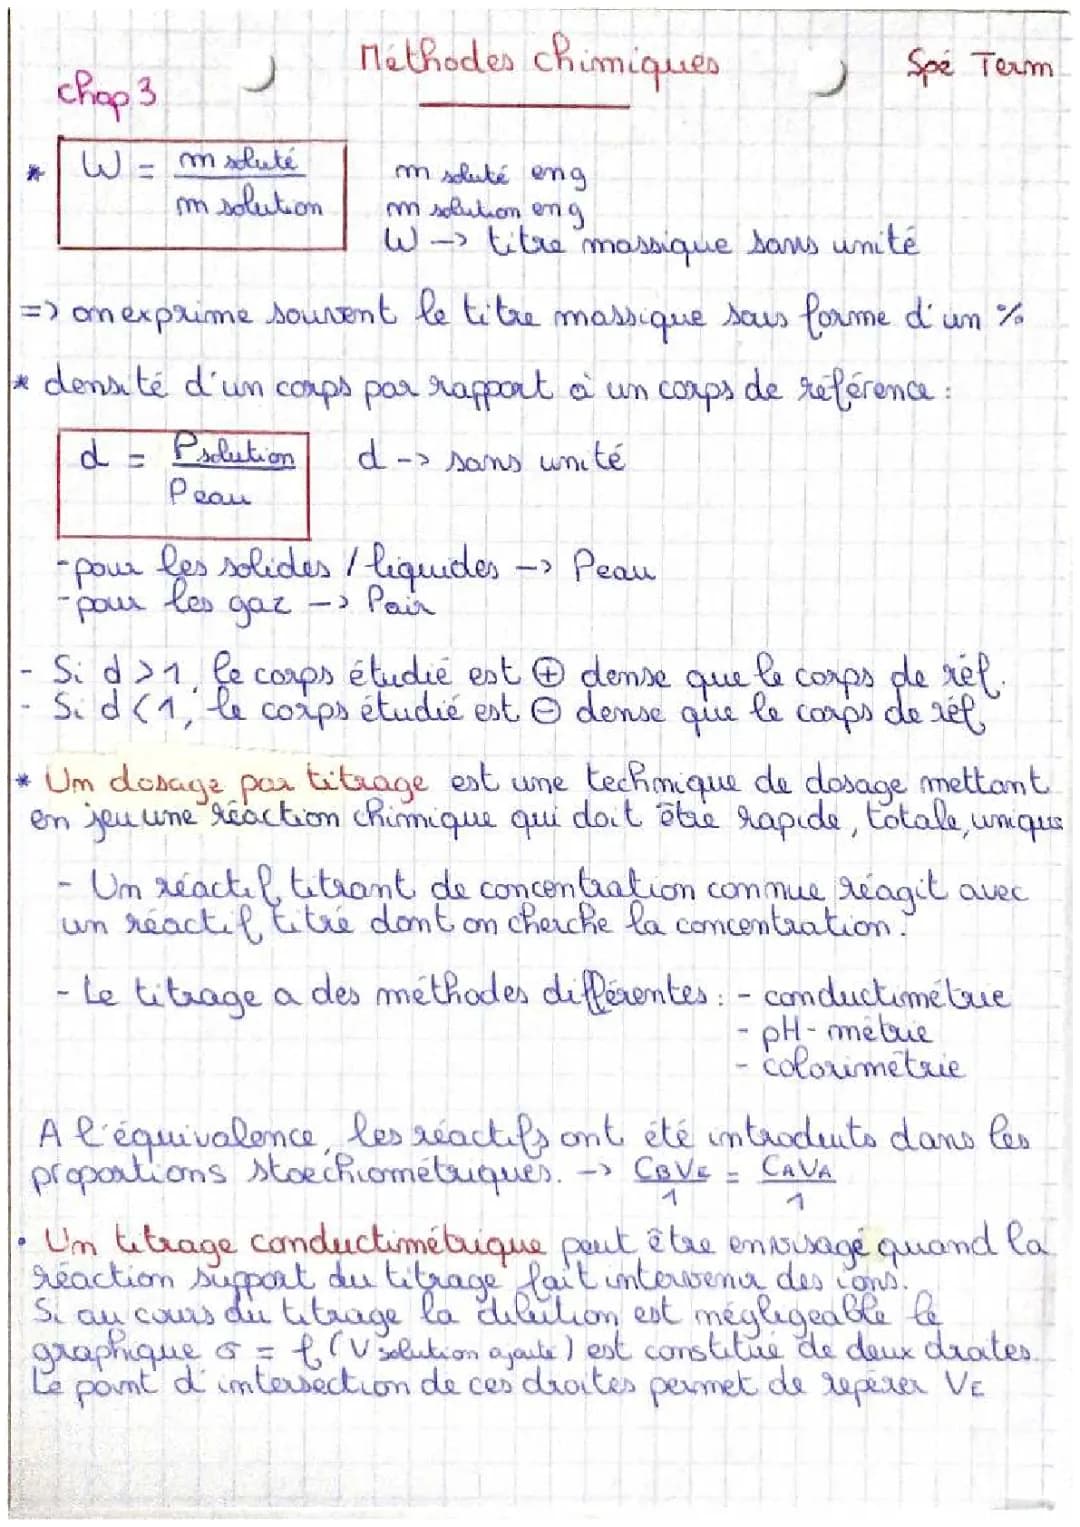 Méthodes chimiques
Spé Term
chap 3
* W = m soluté / m solution
m soluté en g
m solution en g
W -> titre massique sans unité
=> on exprime souvent le titre massique sous forme d'un %
* densité d'un corps par rapport à un corps de référence :
d = ρsolution / ρeau
d -> sans unité
- pour les solides / liquides -> ρeau
- pour les gaz -> ρair
- Si d > 1, le corps étudié est ⊕ dense que le corps de réf.
- Si d < 1, le corps étudié est ⊖ dense que le corps de réf.
* Un dosage par titrage est une technique de dosage mettant
en jeu une réaction chimique qui doit être rapide, totale, unique
- Un réactif titrant de concentration connue réagit avec
un réactif titré dont on cherche la concentration.
- Le titrage a des méthodes différentes : - conductimétrie
- pH-métrie
- colorimétrie
A l'équivalence, les réactifs ont été introduits dans les
proportions stoechiométriques. -> CBVE / 1 = CAVA / 1
• Un titrage conductimétrique peut être envisagé quand la
réaction support du titrage fait intervenir des ions.
Si au cours du titrage la dilution est négligeable le
graphique σ = f (V solution ajouté) est constitué de deux droites.
Le point d'intersection de ces droites permet de repérer VE